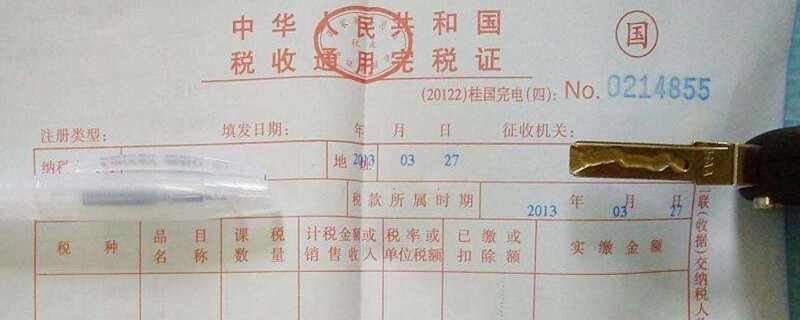 中华人民共和国
税收通用完税证
国
(20122)桂国完电(四): No. 0214855
注册类型: 填发日期: 年 月 日 征收机关:
纳税 地 2013 03 27
税款所属时期 2013 年 03 月 27 日
税种 品目名称 课税数量 计税金额或销售收入 税率或单位税额 已缴或扣除额 实缴金额
联(收据)交纳税人